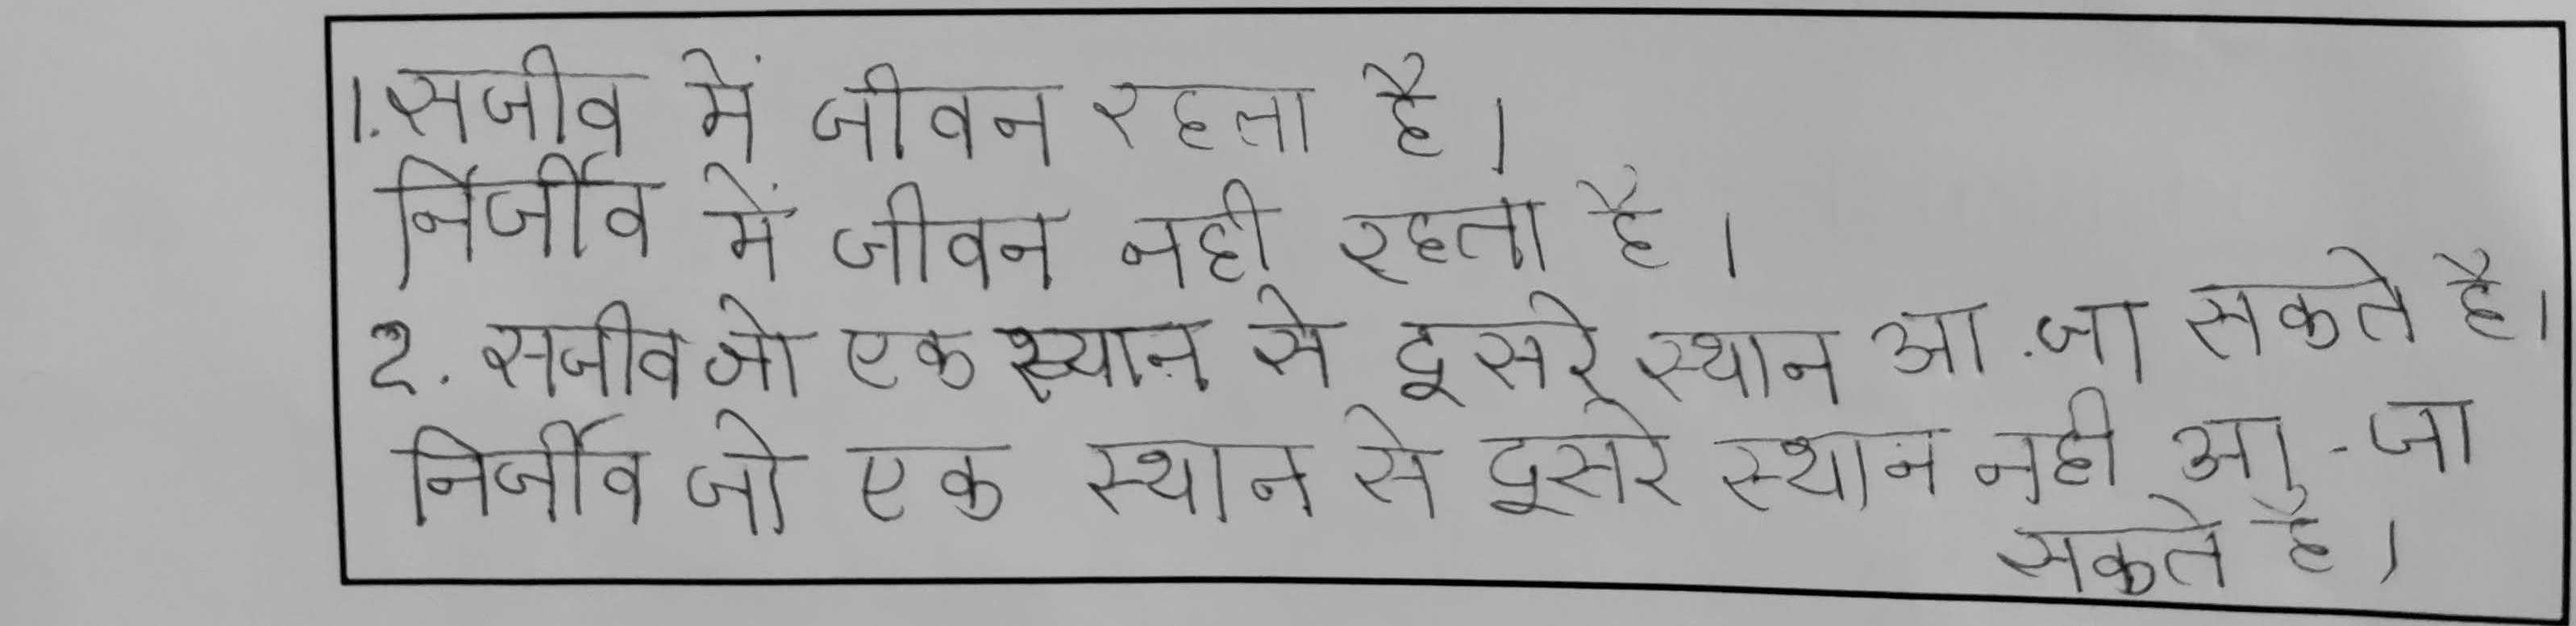 1. सजीव में जीवन रहता है।
निर्जीव में जीवन नही रहता है।
2. सजीव जो एक स्थान से दूसरे स्थान आ.जा सकते है।
निर्जीव जो एक स्थान से दूसरे स्थान नही आ-जा
सकते है।